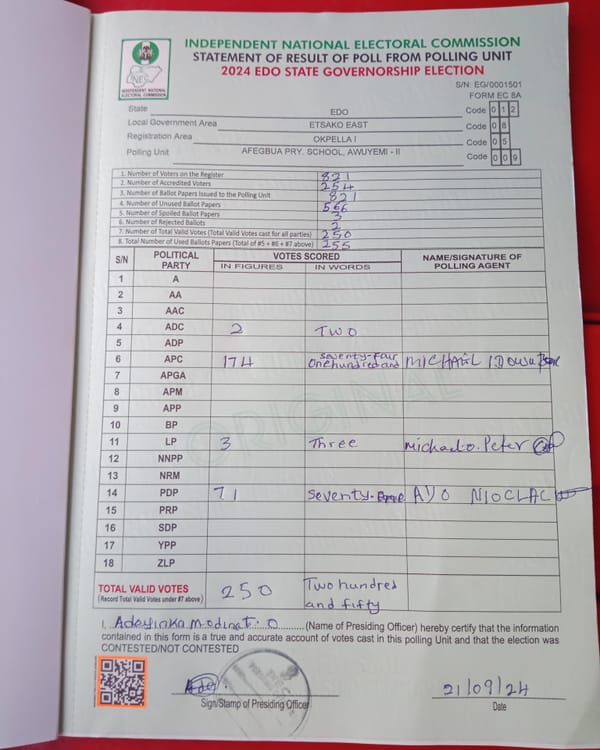 INDEPENDENT NATIONAL ELECTORAL COMMISSION
STATEMENT OF RESULT OF POLL FROM POLLING UNIT
2024 EDO STATE GOVERNORSHIP ELECTION
INEC
INDEPENDENT NATIONAL
ELECTORAL COMMISSION
S/N: EG/0001501
FORM EC 8A
State EDO Code 0 1 2
Local Government Area ETSAKO EAST Code 0 8
Registration Area OKPELLA I Code 0 5
Polling Unit AFEGBUA PRY. SCHOOL, AWUYEMI - II Code 0 0 9
1. Number of Voters on the Register 821
2. Number of Accredited Voters 254
3. Number of Ballot Papers Issued to the Polling Unit 821
4. Number of Unused Ballot Papers 566
5. Number of Spoiled Ballot Papers 3
6. Number of Rejected Ballots 2
7. Number of Total Valid Votes (Total Valid Votes cast for all parties) 250
8. Total Number of Used Ballots Papers (Total of #5 + #6 + #7 above) 255
S/N POLITICAL PARTY VOTES SCORED NAME/SIGNATURE OF POLLING AGENT
IN FIGURES IN WORDS
1 A
2 AA
3 AAC
4 ADC 2 Two
5 ADP
6 APC 174 Seventy-four One hundred and MICHAEL IDOWU
7 APGA
8 APM
9 APP
10 BP
11 LP 3 Three Michael O. Peter
12 NNPP
13 NRM
14 PDP 71 Seventy- AYO
15 PRP
16 SDP
17 YPP
18 ZLP
ORIGINAL
TOTAL VALID VOTES 250 Two hundred
(Record Total Valid Votes under #7 above) and fifty
I, Adeyinka Modinat. O (Name of Presiding Officer) hereby certify that the information
contained in this form is a true and accurate account of votes cast in this polling Unit and that the election was
CONTESTED/NOT CONTESTED
21/09/24
Sign/Stamp of Presiding Officer Date